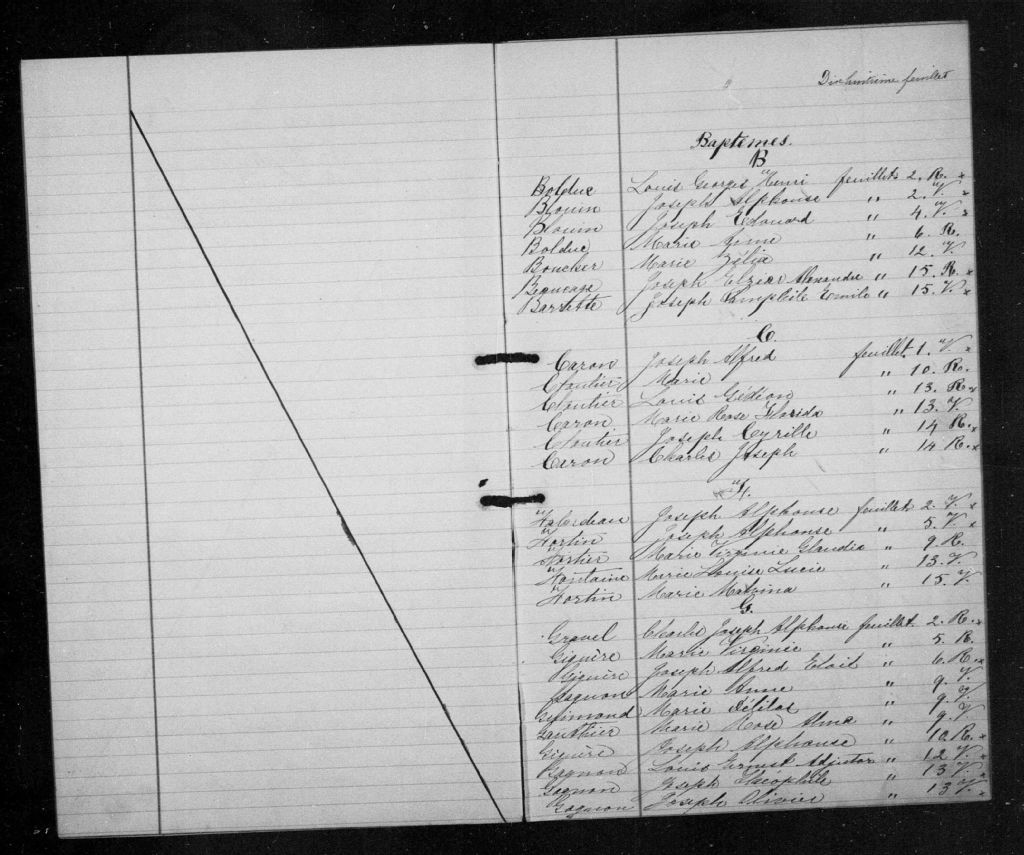 Dixhuitième feuillet
Baptêmes.
B
Bolduc Louis Georges Henri feuillets 2. R. x
Blouin Joseph Alphonse " 2. V. x
Blouin Joseph Edouard " 4. V. x
Bolduc Marie Anne " 6. R.
Boucher Marie Zélia " 12. V.
Beaucage Joseph Elzéar Alexandre " 15. R. x
Barrette Joseph Pamphile Emile " 15. V. x
C.
Caron Joseph Alfred feuillet 1. V. x
Cloutier Marie " 10. R.
Cloutier Louis Gédéon " 13. R. x
Caron Marie Rose Florida " 13. V.
Cloutier Joseph Cyrille " 14 R. x
Caron Charles Joseph " 14 R. x
F.
Faberdeau Joseph Alphonse feuillets 2. V. x
Fortin Joseph Alphonse " 5. V. x
Fortier Marie Virginie Glaudia " 9. R.
Fontaine Marie Louise Lucie " 13. V.
Fortin Marie Malvina " 15. V.
G.
Gravel Charles Joseph Alphonse feuillet 2. R. x
Giguère Marie Virginie " 5. R.
Giguère Joseph Alfred " 6. R. x
Gagnon Marie Anne " 9. V.
Marie Délilas " 9. V.
Gauthier Marie Rose Alma " 9. V.
Giguère Joseph Alphonse " 10. R. x
Gagnon Louis Ernest Adjutor " 12 V. x
Gagnon Joseph Théophile " 13 V. x
Gagnon Joseph Olivier " 13 V. x